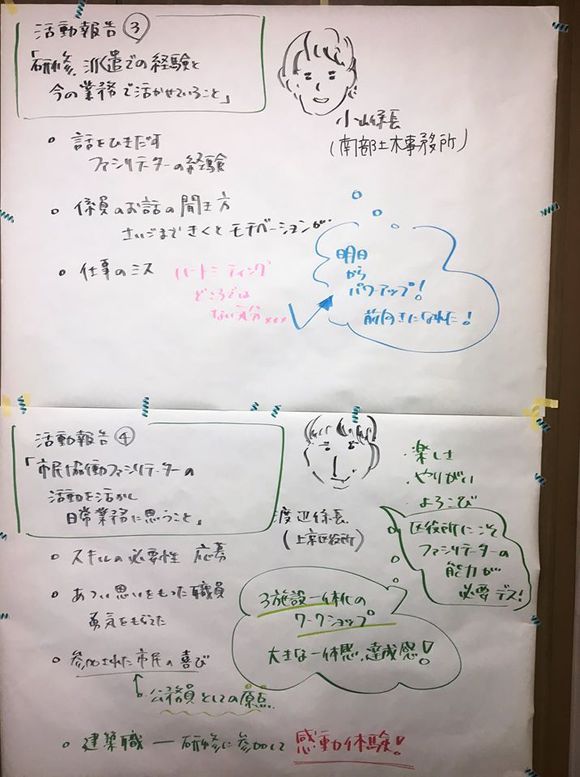 活動報告③
「研修、派遣での経験と
今の業務で活かせていること」
小山係長
(南部土木事務所)
• 話をひきだす
ファシリテーターの経験
• 係員のお話の聞き方
さいごまできくとモチベーションが…
• 仕事のミス
ハートミーティング
どころでは
ない気分
明日
から
パワーアップ!
前向きになれた!
活動報告④
「市民協働ファシリテーターの
活動を活かし
日常業務に思うこと」
渡辺係長
(上京区役所)
・楽しさ
・やりがい
・よろこび
区役所にこそ
ファシリテーターの
能力が
必要デス!
• スキルの必要性 応募
• あつい思いをもった職員
勇気をもらえた
3施設一体化の
ワークショップ
大きな一体感、達成感!
• 参加された市民の喜び
公務員としての原点
• 建築職 ― 研修に参加して 感動体験!